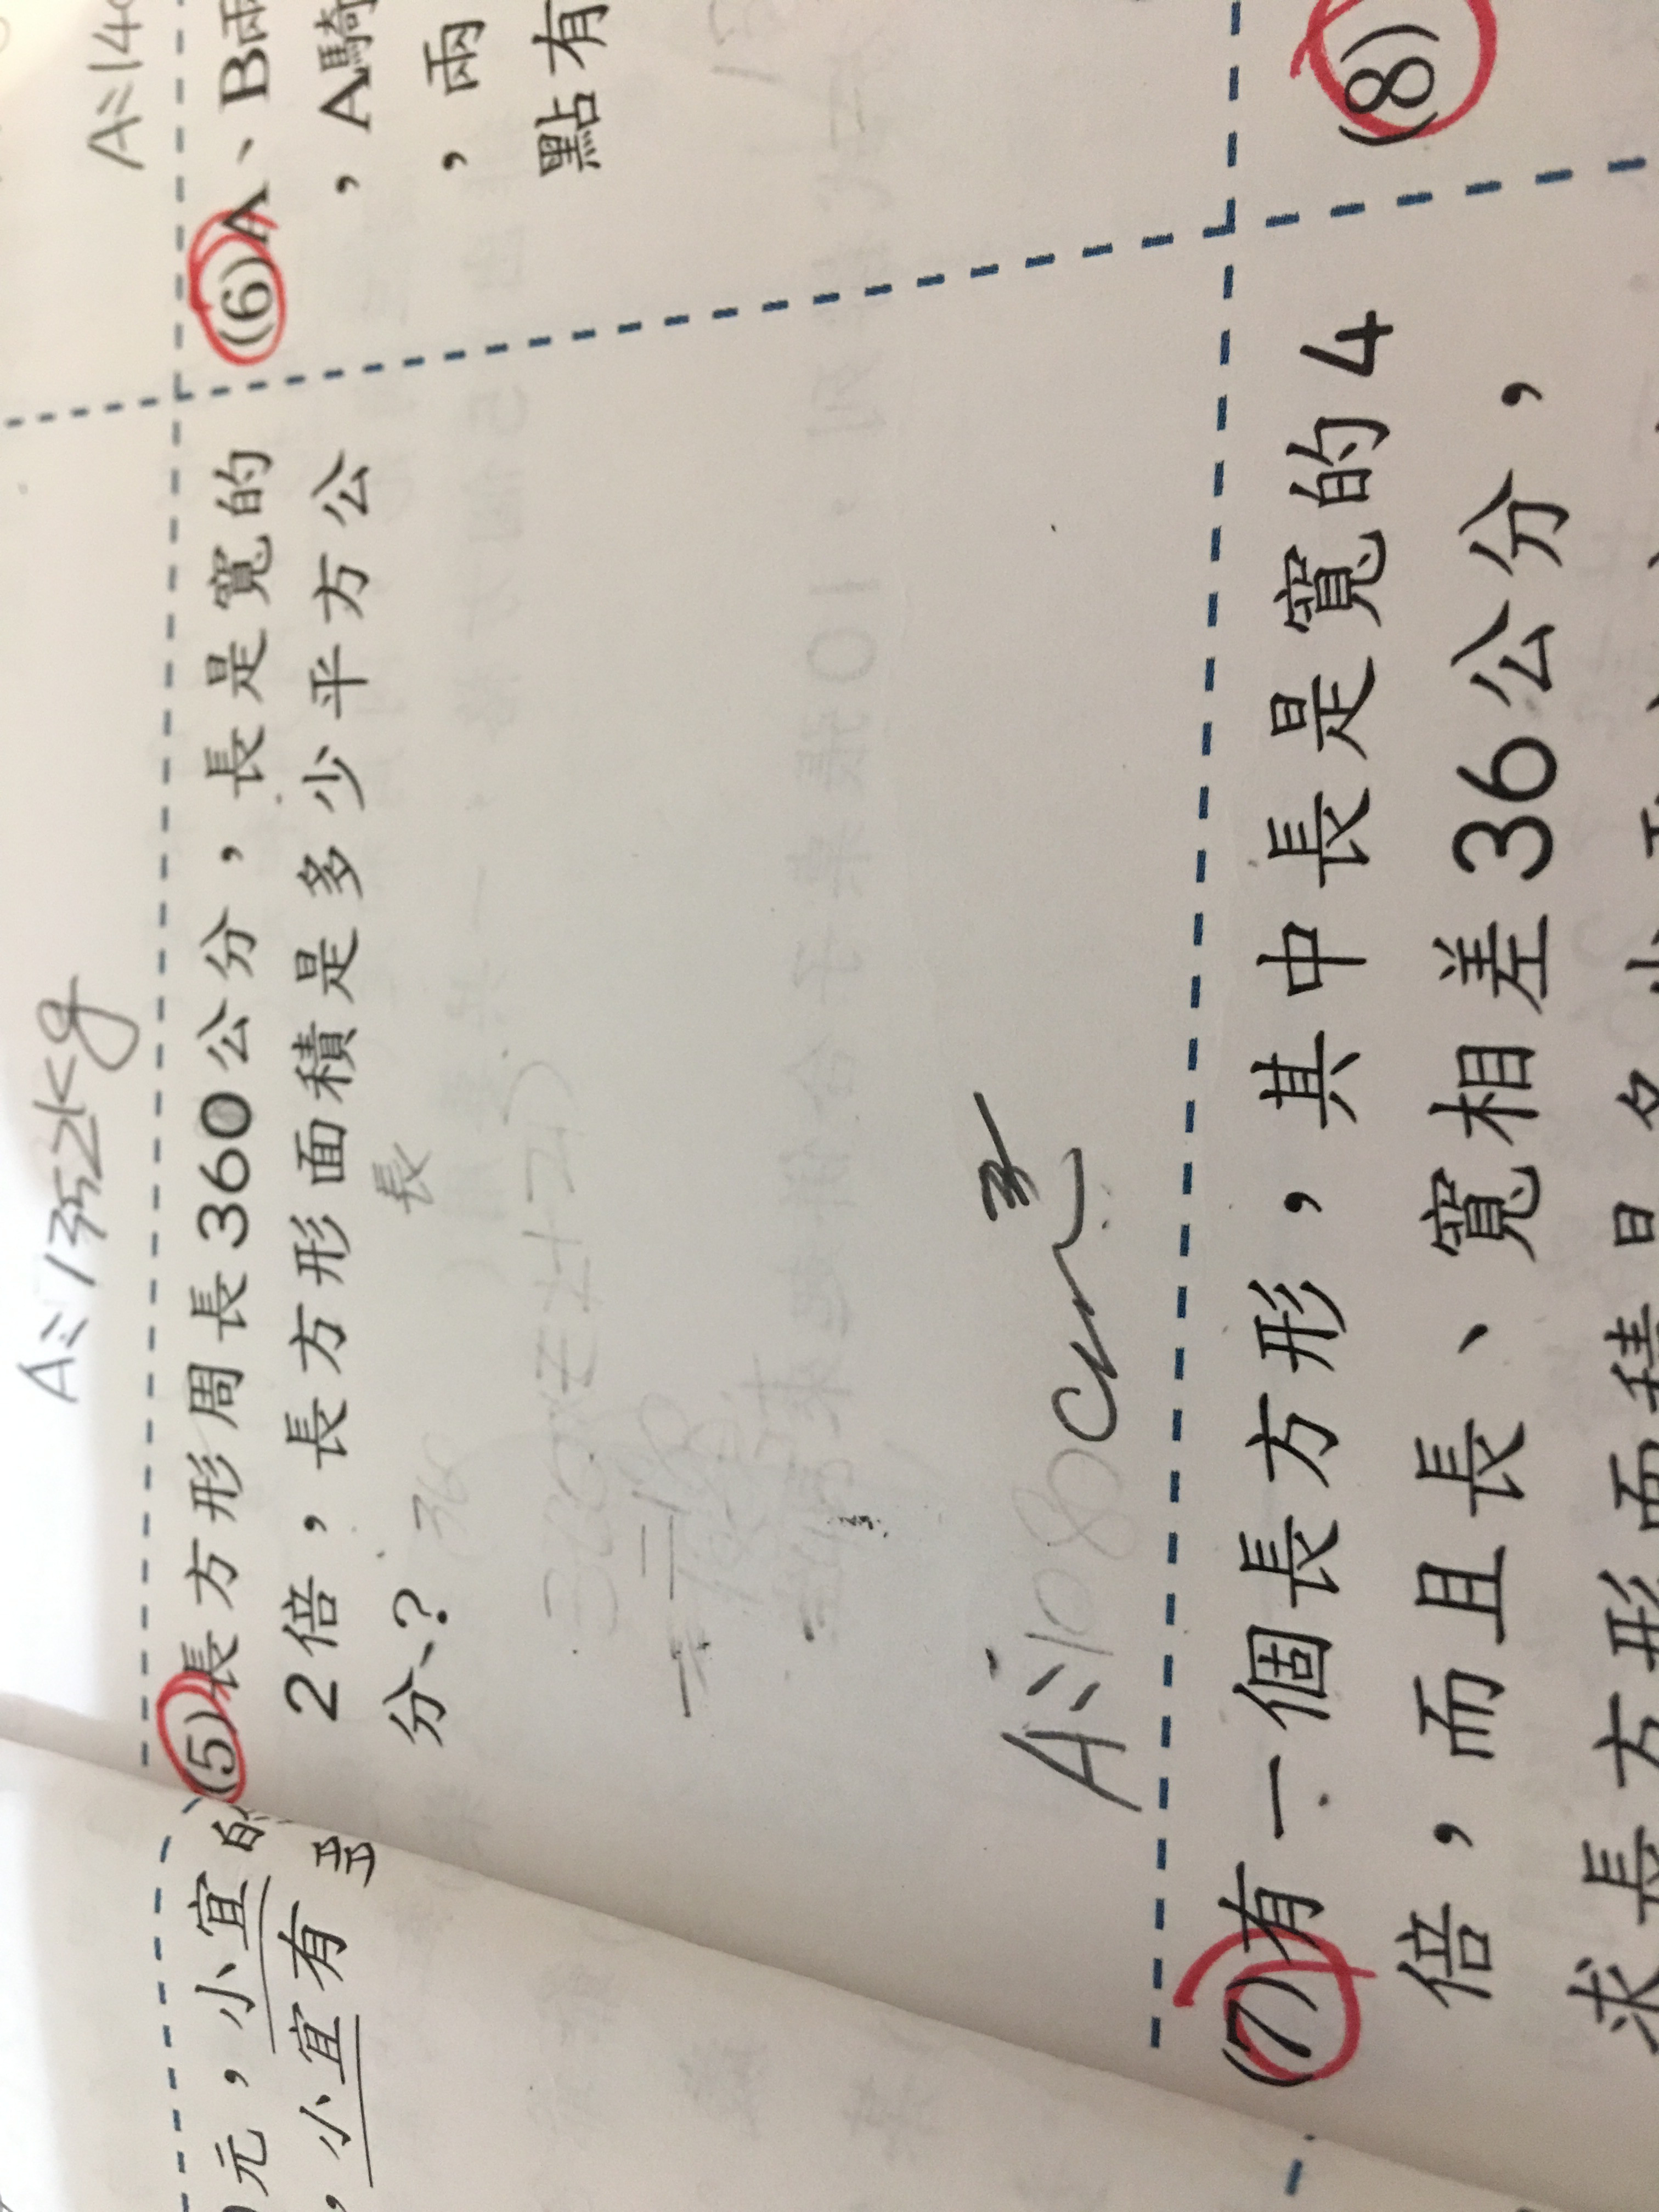 A:1352kg
A:14
(5)長方形周長360公分，長是寬的
2倍，長方形面積是多少平方公
分？
長
A:1080cm
(6)A、B兩
，A騎
，兩
點有
元，小宜的
，小宜有
(7)有一個長方形，其中長是寬的4
倍，而且長、寬相差36公分，
求長方形面積是多少
(8)